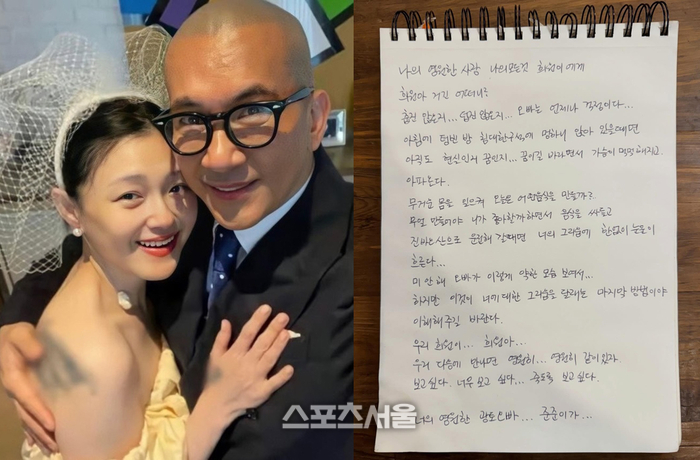 스포츠서울
나의 영원한 사랑 나의모든것 희원이에게
희원아 거긴 어떠니?
춥진 않은지... 덥진 않은지... 오빠는 언제나 걱정이다...
아침에 텅빈 방 침대한구석에 멍하니 앉아 있을때면
아직도 현실인지 꿈인지... 꿈이길 바라면서 가슴이 먹먹해지고
아파온다.
무거운 몸을 일으켜 오늘은 어떤음식을 만들까?
무얼 만들어야 니가 좋아할까하면서 음식을 싸들고
진바오산으로 운전해 갈때면 너의 그리움에 한없이 눈물이
흐른다...
미안해 오빠가 이렇게 약한 모습 보여서...
하지만 이것이 너에대한 그리움을 달래는 마지막 방법이야
이해해주길 바란다.
우리 희원이... 희원아...
우리 다음에 만나면 영원히... 영원히 같이있자
보고싶다. 너무 보고 싶다... 죽도록 보고싶다.
너의 영원한 광토오빠... 준준이가...